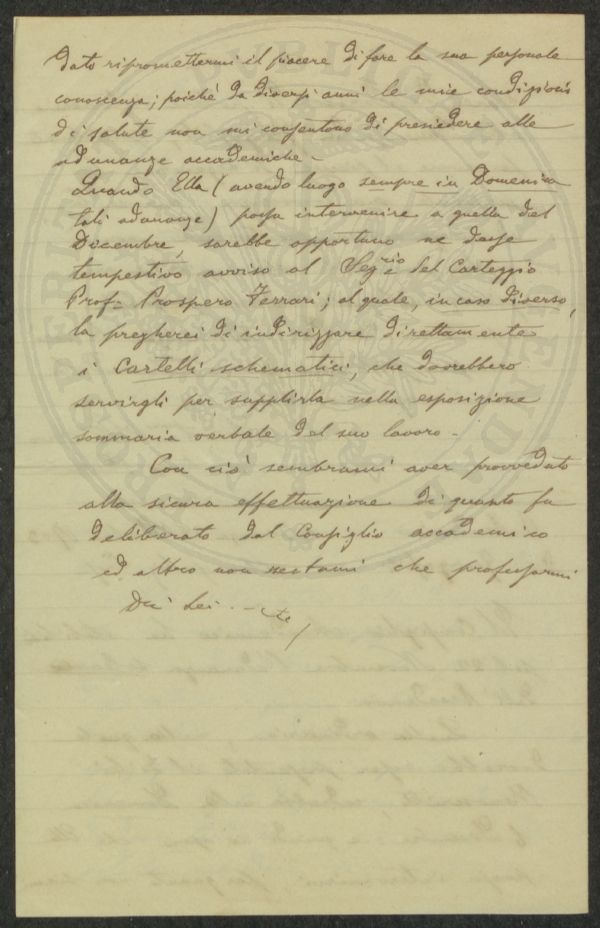 dato ripromettermi il piacere di fare la sua personale
conoscenza; poichè da diversi anni le mie condizioni
di salute non mi consentono di presiedere alle
adunanze accademiche -
Quando Ella (avendo luogo sempre in Domenica
tali adunanze) possa intervenire a quella del
Dicembre, sarebbe opportuno ne desse
tempestivo avviso al Seg.rio del Carteggio
Prof. Prospero Ferrari; al quale, in caso diverso,
la pregherei di indirizzare direttamente
i Cartelli schematici, che dovrebbero
servirgli per supplirla nella esposizione
sommaria verbale del suo lavoro -
Con ciò sembrami aver provveduto
alla sicura effettuazione di quanto fu
deliberato dal Consiglio accademico
ed altro non restami che professarmi
Di Lei